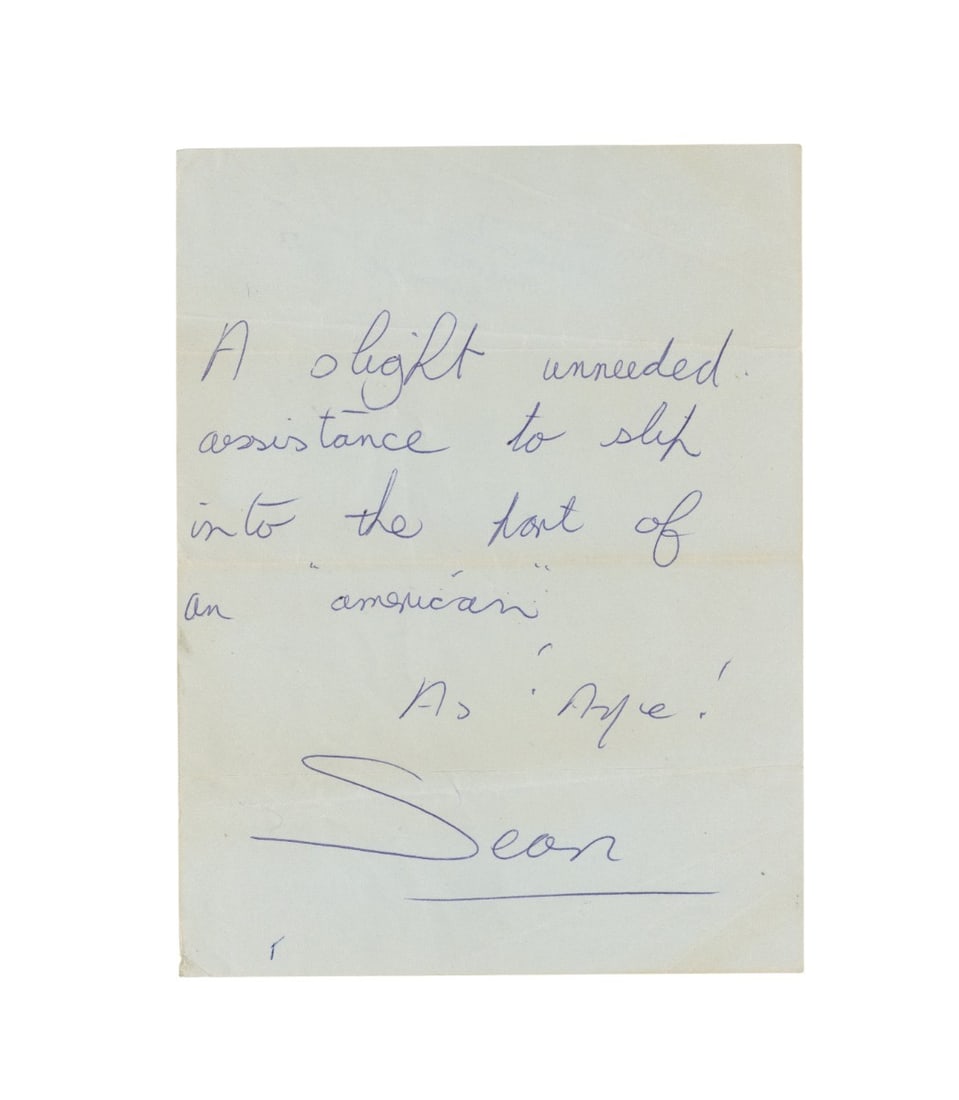 A slight unneeded
assistance to slip
into the part of
an "american"
As 'Aye!'
Sean